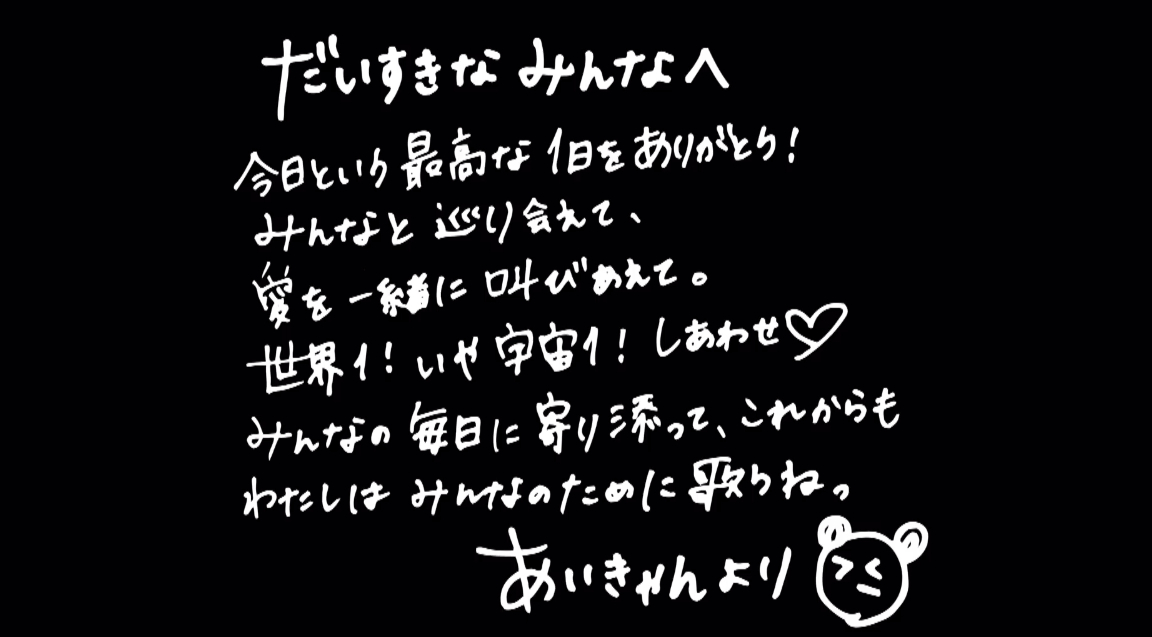 だいすきな みんなへ
今日という最高な1日をありがとう!
みんなと巡り会えて、
愛を一緒に叫びあえて。
世界1!いや宇宙1!しあわせ♡
みんなの毎日に寄り添って、これからも
わたしは みんなのために歌うねっ
あいきゃんより